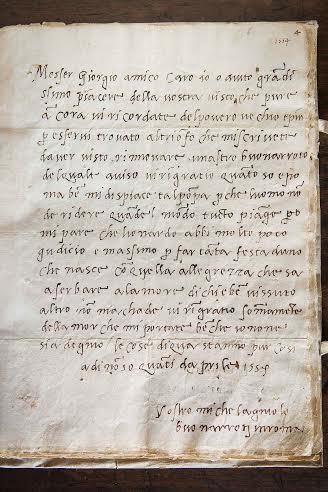 1554
4
Messer Giorgio amico caro io o avuto grādi
ssimo piacere della vostra visto che pure
ācora vi ricordate del povero vechio e piu
p esservi trovato al triōfo che mi scrivete
daver visto rinovare un altro buonarroto
del quale aviso vi rigratio quāto so e po
ma bē mi dispiace tal pōpa p che luomo nō
de ridere quādel mōdo tucto piāge po
mi pare che lionardo abbi molto poco
gudicio e massimo p far tāta festa duno
che nasce cō quella allegrezza che sa
a serbare alla morte di chi e bē vissuto
altro nō machade vi rigratio somamēte
dellamor che mi portate bēche io none
sia degnio le cose di qua stanno pur cosi
a di nō so quāti daprile 1554
Vostro michelagniolo
buonarroti in roma